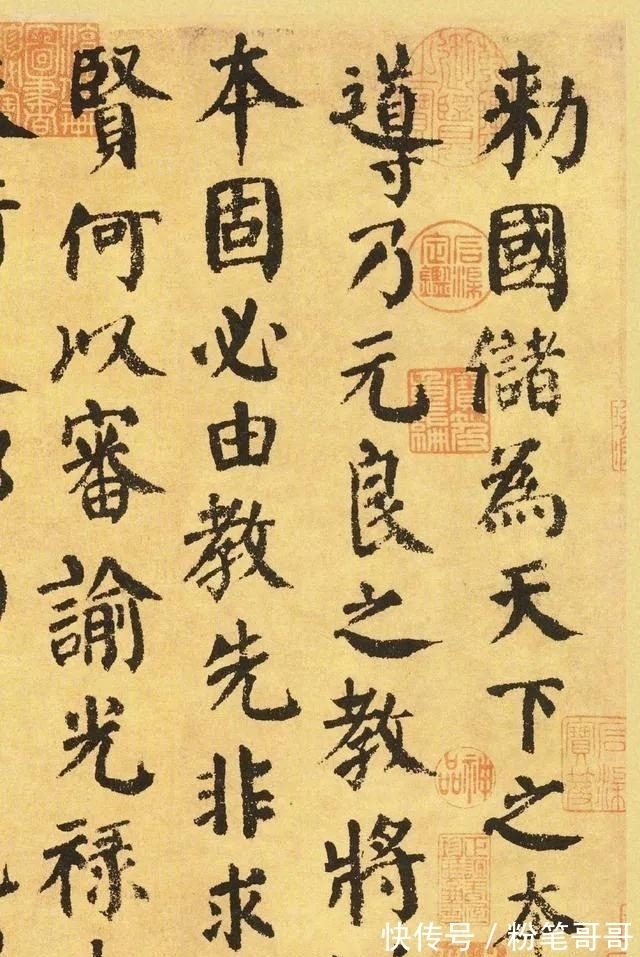 勑國儲為天下之本
導乃元良之教將
本固必由教先非求
賢何以審諭光禄
神品
快传号 / 粉笔哥哥